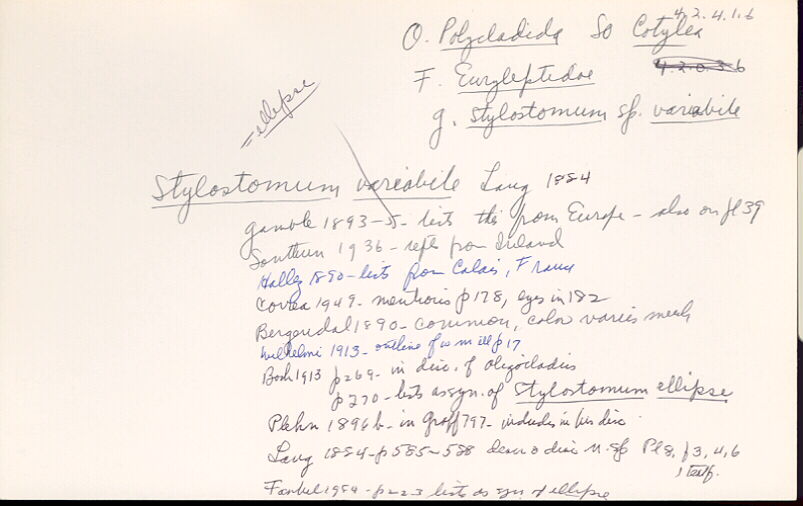 4.2.4.1.6
O. Polycladida So Cotylea
4.2.0.3.6
F. Euryleptidae
= ellipse
g. Stylostomum sp. variabile
Stylostomum variabile Lang 1884
Gamble 1893-5- lists this from Europe - also on pl 39
Southern 1936- repts from Ireland
Hallez 1890- lists from Calais, France
Correa 1949- mentions p178, eyes in 182
Bergendal 1890- common, color varies much
Wilhelmi 1913- outline of worm ill p17
Bock 1913 p269- in disc. of oligocladus
p270- lists as syn. of Stylostomum ellipse
Plehn 1896b- in Graff 797- includes in his disc
Lang 1884-p585-588 descr & disc n. sp Pl 8, f 3, 4, 6
Faubel 1984- p223 lists as syn of ellipse